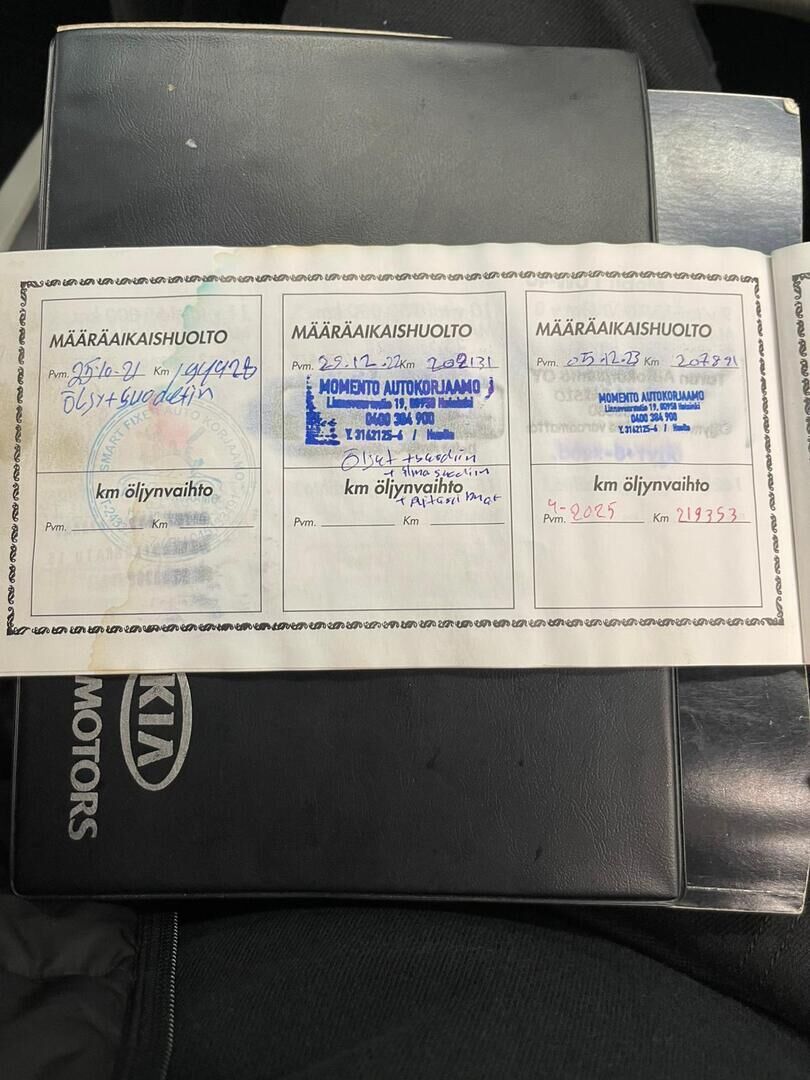 MÄÄRÄAIKAISHUOLTO
Pvm. 2510-21 Km 194428
Öljy+suodatin
SMART FIXE AUTO KORJAAMO
km öljynvaihto
Pvm. Km
MÄÄRÄAIKAISHUOLTO
Pvm. 29.12.22 Km 202131
MOMENTO AUTOKORJAAMO
Linnavuorentie 19, 00950 Helsinki
0400 384 900
Y.3162125-6 / Huolto
Öljyt +suodin
+ ilmasuodin
km öljynvaihto
Pvm. Km
MÄÄRÄAIKAISHUOLTO
Pvm. 05.12.23 Km 207891
MOMENTO AUTOKORJAAMO
Linnavuorentie 19, 00950 Helsinki
0400 384 900
Y.3162125-6 / Huolto
km öljynvaihto
Pvm. 4-2025 Km 219353
KIA
MOTORS